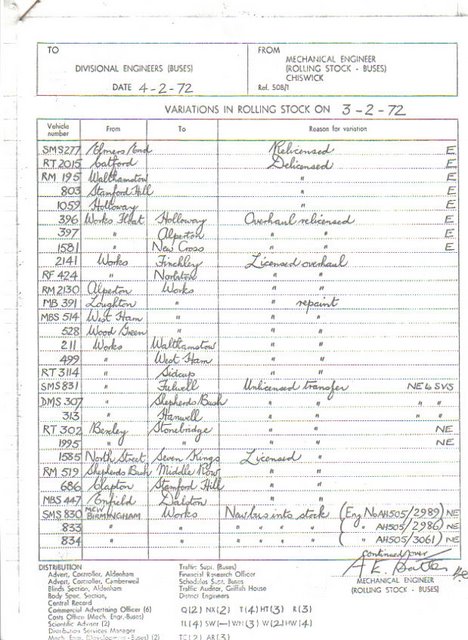 TO
DIVISIONAL ENGINEERS (BUSES)
DATE 4-2-72
FROM
MECHANICAL ENGINEER
(ROLLING STOCK - BUSES)
CHISWICK
Ref. 508/1
VARIATIONS IN ROLLING STOCK ON 3-2-72
Vehicle number From To Reason for variation
SMS277 Elmers End Relicensed E
RT 2015 Catford Delicensed E
RM 195 Walthamstow " E
803 Stamford Hill " E
1059 Holloway " E
396 Works Float Holloway Overhaul relicensed E
397 " Alperton " " E
1581 " New Cross " " E
2141 Works Finchley Licensed overhaul
RF 424 " Norbiton " "
RM 2130 Alperton Works " "
MB 391 Loughton " " repaint
MBS 514 West Ham " " "
528 Wood Green " " "
211 Works Walthamstow " "
499 " West Ham " "
RT 3114 " Sidcup " "
SMS 831 " Fulwell Unlicensed transfer NE & SVS
DMS 307 " Shepherds Bush " " " "
313 " Hanwell " " " "
RT 302 Bexley Stonebridge " " NE
1995 " " " " NE
1585 North Street Seven Kings Licensed "
RM 519 Shepherds Bush Middle Row " "
686 Clapton Stamford Hill " "
MBS 447 Enfield Dalston " "
SMS 830 MCW BIRMINGHAM Works New bus into stock (Eng No AH505/2989) NE
833 " " " " " ( " AH505/2986) NE
834 " " " " " ( " AH505/3061) NE
continued over
MECHANICAL ENGINEER
(ROLLING STOCK - BUSES)
DISTRIBUTION
Advert. Controller, Aldenham
Advert. Controller, Camberwell
Blinds Section, Aldenham
Body Spec. Section,
Central Record
Commercial Advertising Officer (6)
Costs Officer (Mech. Engr.-Buses)
Scientific Adviser (2)
Distribution Services Manager
Mech. Eng. Draughtsmen - Buses (2)
Traffic Supt. (Buses)
Financial Research Officer
Schedules Supt. (Buses)
Traffic Auditor, Griffith House
District Engineers
Q(2) NX(2) T(4) HT(3) R(3)
TL(4) SW(-) WH(3) W(2) HW(4)
TC(2) AR(3)